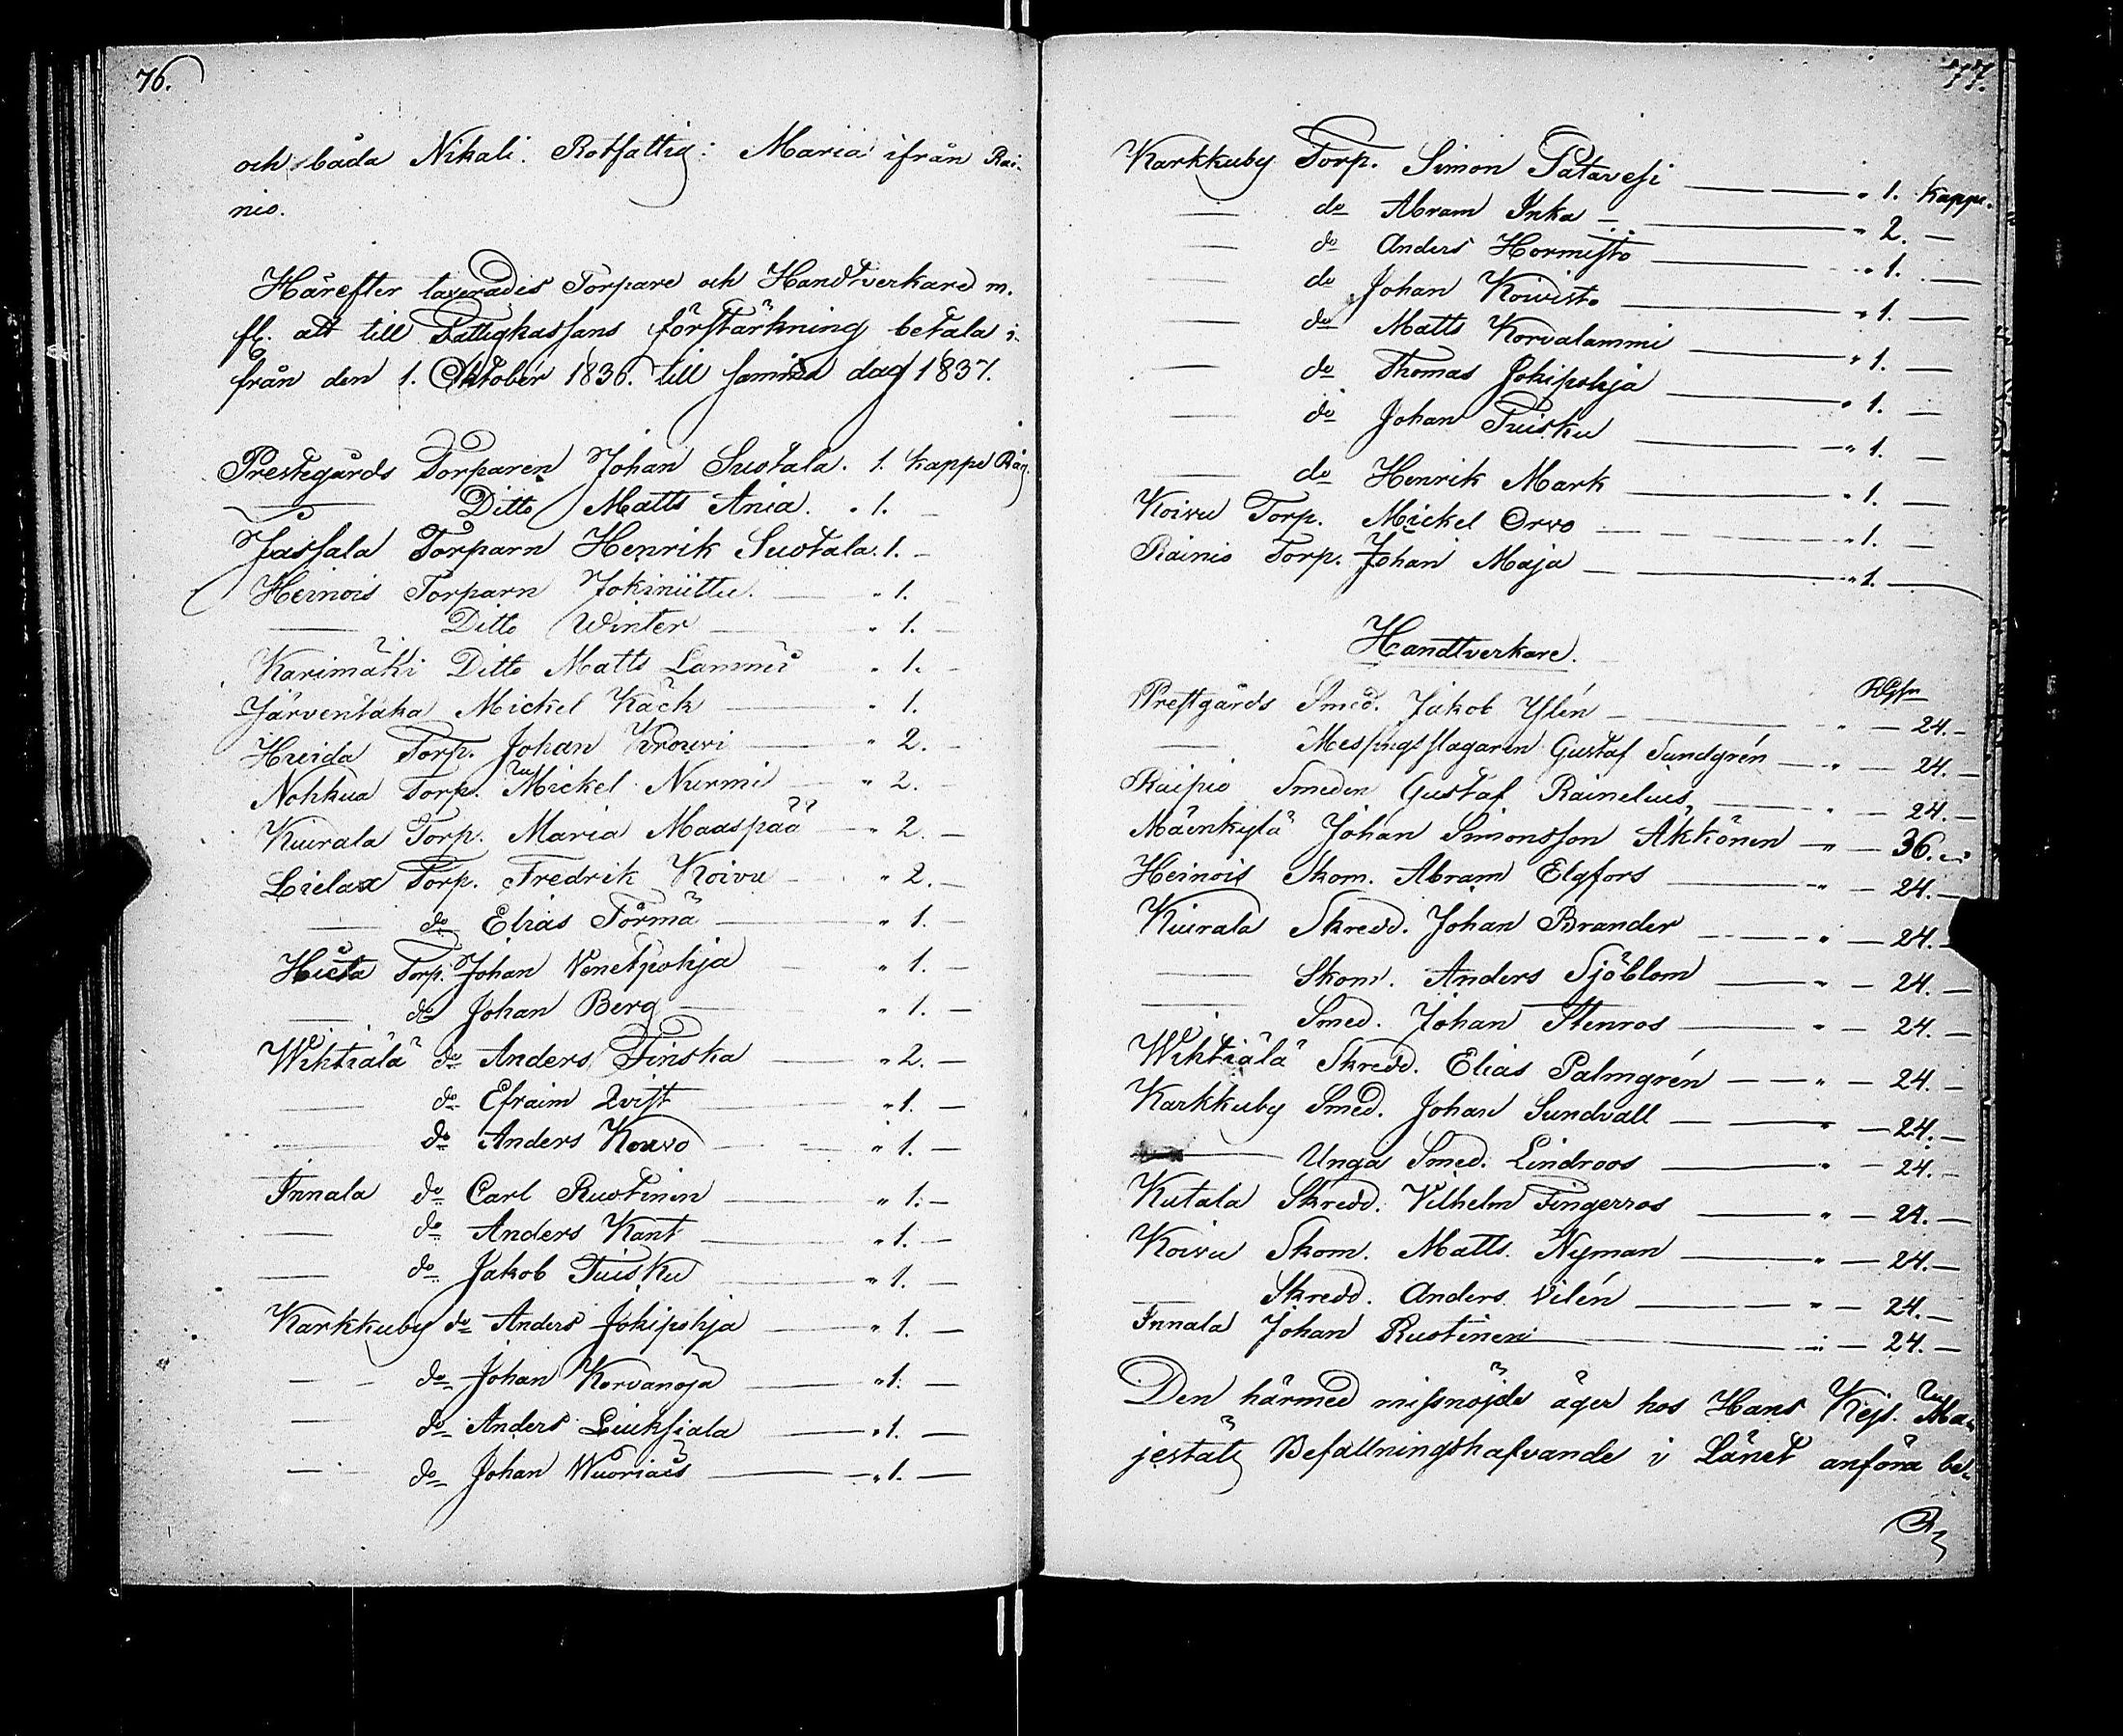 76.
och båda Nikali. Rotfattig: Maria ifrån Rai-
nio.
Härefter taxerades Torpare och Handtverkare m.
fl. att till Fattigkassans förstärkning betala i-
från den 1. Oktober 1836. till samma dag 1837.
Prestegårds Torparen Johan Sustala. 1. Kappe Råg.
— Ditto Matts Ania. " 1. —
Jassala Torparn Henrik Sustala. 1. —
Heinois Torparn Jokiniittu. — " 1. —
— Ditto Winter — " 1. —
Karimäki Ditto Matts Lammi " 1. —
Järventaka Mickel Käck — " 1.
Hueida Torp. Johan Krouvi — " 2. —
Nohkua Torp. Mickel Nurmi — " 2. —
Kiurala Torp. Maria Maaspää — " 2. —
Lielax Torp. Fredrik Koivu — " 2. —
— do Elias Törmä — " 1. —
Hieta Torp. Johan Venetpohja — " 1. —
— do Johan Berg — " 1. —
Wihtiälä do Anders Finska — " 2. —
— do Efraim Qvist — " 1. —
— do Anders Kouvo — " 1. —
Innala do Carl Rustinin — " 1. —
— do Anders Kant — " 1. —
— do Jakob Tuisku — " 1. —
Karkkuby do Anders Jokipohja — " 1. —
— do Johan Korvanoja — " 1. —
— do Anders Liuksiala — " 1. —
— do Johan Wuoriais — " 1. —
77.
Karkkuby Torp. Simon Patavesi — " 1. Kappe.
— do Abram Inka — " 2. —
— do Anders Hormisto — " 1. —
— do Johan Koivisto — " 1. —
— do Matts Korvalammi — " 1. —
— do Thomas Jokipohja — " 1. —
— do Johan Tuisku — " 1. —
— do Henrik Mark — " 1. —
Koivu Torp. Mickel Orvo — " 1. —
Rainio Torp. Johan Maja — " 1. —
Handtverkare.
Prestgårds Smed. Jakob Ylén — " — 24. —
— Messingsslagaren Gustaf Sundgrén — " — 24. —
Raipio Smeden Gustaf Rainelius — " — 24. —
Mäenkylä Johan Simonsson Äkkönen — " — 36. —
Heinois Skom. Abram Elgfors — " — 24. —
Kiurala Skredd. Johan Brander — " — 24. —
— Skom. Anders Sjöblom — " — 24. —
— Smed. Johan Stenros — " — 24. —
Wihtiälä Skredd. Elias Palmgrén — " — 24. —
Karkkuby Smed. Johan Sundvall — " — 24. —
— Unga Smed. Lindroos — " — 24. —
Kutala Skredd. Vilhelm Fingerros — " — 24. —
Koivu Skom. Matts Nyman — " — 24. —
— Skredd. Anders Vilén — " — 24. —
Innala Johan Rustinen — " — 24. —
Den härmed missnöjde äger hos Hans Kejs. Ma-
jestäts Befallningshafvande i Länet anföra be-